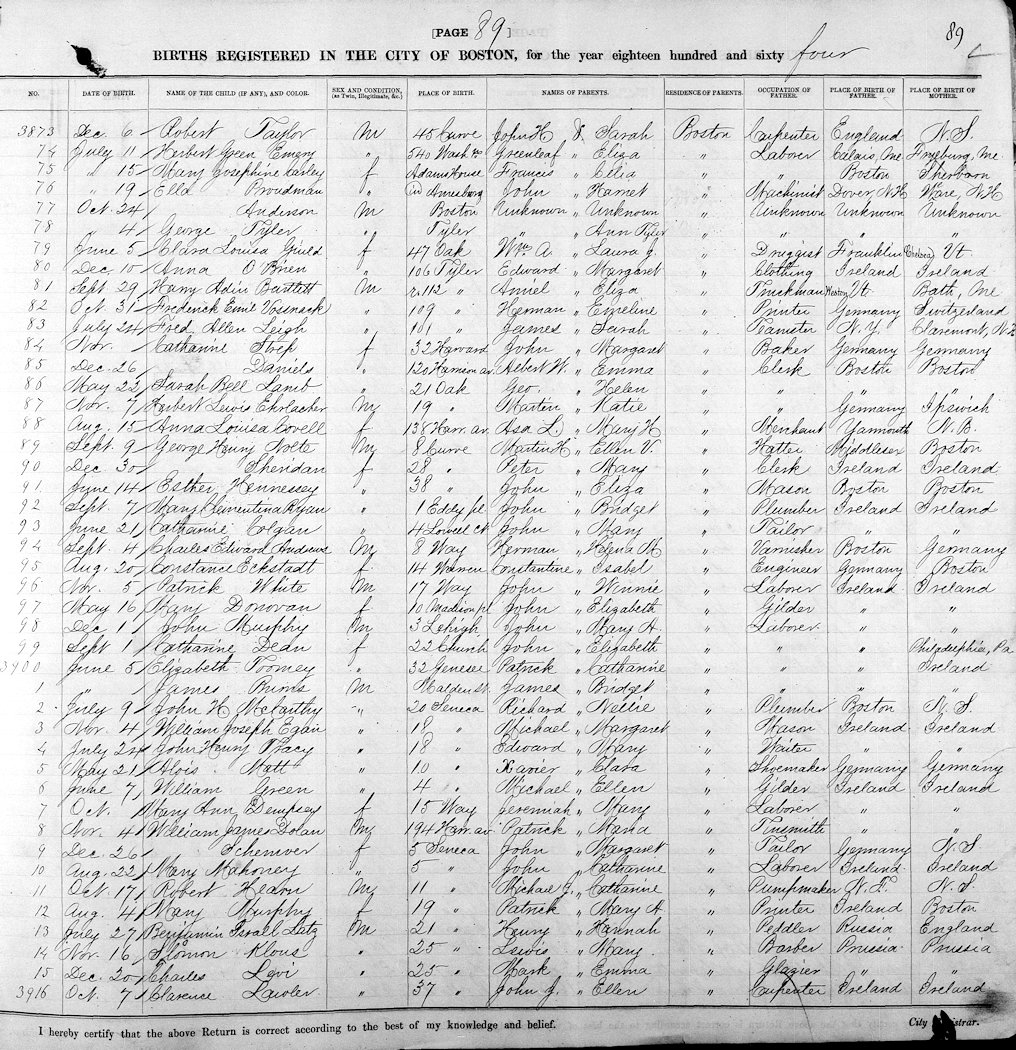 [PAGE 89] 89
BIRTHS REGISTERED IN THE CITY OF BOSTON, for the year eighteen hundred and sixty four
NO. DATE OF BIRTH. NAME OF THE CHILD (IF ANY), AND COLOR. SEX AND CONDITION, (as Twin, Illegitimate, &c.) PLACE OF BIRTH. NAMES OF PARENTS. RESIDENCE OF PARENTS. OCCUPATION OF FATHER. PLACE OF BIRTH OF FATHER. PLACE OF BIRTH OF MOTHER.
3873 Dec 6 Robert Taylor M 45 Curve John H & Sarah Boston Carpenter England N.S.
74 July 11 Herbert Green Emery " 540 Wash " Greenleaf " Eliza " Laborer Calais, Me Fryeburg, Me
75 " 15 Mary Josephine f Adams House Francis " Celia " " Boston Sherborn
76 " 19 Ella Proudman " Amesbury John " Harriet " Machinist Dover, N.H. Ware, N.H
77 Oct. 24 Anderson M Boston Unknown " Unknown " Unknown Unknown Unknown
78 " 4 George Tyler " Tyler " " Ann Tyler " " " "
79 June 5 Clara Louisa Guild f 47 Oak Wm A. " Laura J. " Druggist Franklin Chelsea, Vt.
80 Dec. 10 Anna O'Brien " 106 Tyler Edward " Margaret " Clothing Ireland Ireland
81 Sept 29 Harry Bartlett M r.112 " " Eliza " Truckman Weston, Vt. Bath, Me
82 Oct. 31 Frederick Emil " 109 " Herman " Emeline " Printer Germany Switzerland
83 July 24 Fred Allen Leigh " 101 " James " Sarah " Teamster N.Y. Claremont, N.H
84 Nov. Catharine f 32 Harvard John " Margaret " Baker Germany Germany
85 Dec. 26 Daniels " 120 Harrison av. W. " Emma " Clerk Boston Boston
86 May 22 Sarah Bell Lamb " 21 Oak Geo. " Helen " " " "
87 Nov. 7 Herbert Lewis M 19 " Martin " Katie " " Germany Ipswich
88 Aug. 15 Anna Louisa Covell f 138 Harr. av. Asa L. " Mary H " Merchant Yarmouth N.B.
89 Sept. 9 George Henry Nolte M 8 Curve Martin H. " Ellen V. " Hatter Boston
90 Dec. 30 Sheridan f 28 " Peter " Mary " Clerk Ireland Ireland
91 June 14 Esther Hennessey " 38 " John " Eliza " Mason Boston Boston
92 Sept. 7 Mary Clementina Ryan " 1 Eddy pl John " Bridget " Plumber Ireland Ireland
93 June 21 Catharine Colgan " 4 Lowell ct John " Mary " Tailor " "
94 Sept. 4 Charles Edward Andrews M 8 Way Herman " Helena M " Varnisher Boston Germany
95 Aug. 20 Constance Eckstadt f 14 Warren Constantine " Isabel " Engineer Germany Boston
96 Nov. 5 Patrick White M 17 Way John " Winnie " Laborer Ireland Ireland
97 May 16 Mary Donovan f 10 Madison pl John " Elizabeth " Gilder " "
98 Dec 1 John Murphy M 3 Lehigh John " Mary A. " Laborer " "
99 Sept 1 Catharine Dean f 22 Church John " Elizabeth " " " Philadelphia, Pa
3900 June 5 Elizabeth Toomey " 32 Genesee Patrick " Catharine " " " Ireland
1 " James Burns M Malden st James " Bridget " " " "
2 July 9 John H McCarthy " 20 Seneca Richard " Nellie " Plumber Boston N.S.
3 Nov. 4 William Joseph Egan " 18 " Michael " Margaret " Mason Ireland Ireland
4 July 24 John Henry Tracy " 18 " Edward " Mary " Waiter " "
5 May 21 Alois Matt " 10 " Xavier " Clara " Shoemaker Germany Germany
6 June 7 William Green " 4 " Michael " Ellen " Gilder Ireland Ireland
7 Oct. Mary Ann Dempsey f 15 Way Jeremiah " Mary " Laborer " "
8 Nov. 4 William James Dolan M 194 Harr. av Patrick " Maria " Tinsmith " "
9 Dec. 26 f 5 Seneca John " Margaret " Tailor Germany N.S.
10 Aug. 22 Mary Mahoney " 5 " John " Catharine " Laborer Ireland Ireland
11 Oct. 17 Robert Hearn M 11 " Michael J. " Catharine " Pumpmaker N.F. N.S
12 Aug. 4 Mary Murphy f 19 " Patrick " Mary A " Printer Ireland Boston
13 July 27 Benjamin Israel Latz M 21 " Henry " Hannah " Peddler Russia England
14 Nov. 16 Solomon Klous " 25 " Lewis " Mary " Barber Prussia Prussia
15 Dec. 20 Charles Levi " 25 " Mark " Emma " Glazier " "
3916 Oct. 7 Clarence Lawler " 37 " John J. " Ellen " Carpenter Ireland Ireland
I hereby certify that the above Return is correct according to the best of my knowledge and belief. City Registrar.